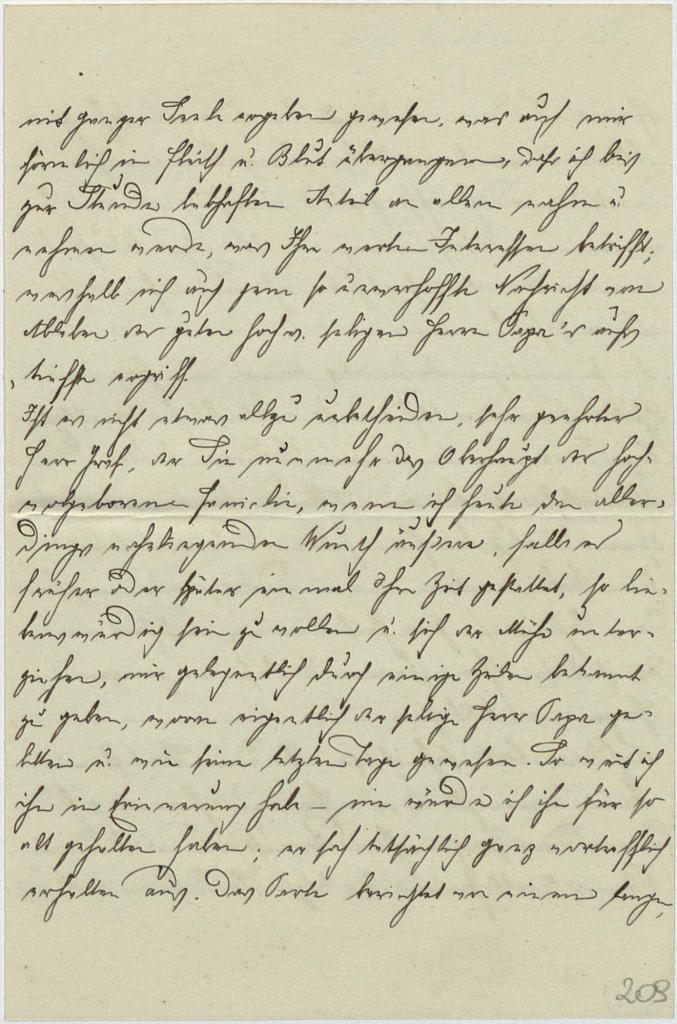 mit ganzer Seele ergeben gewesen, was auch mir
förmlich in Fleisch u. Blut übergegangen, daß ich bis
zur Stunde lebhaften Anteil an allem nahm u
nehmen werde, was Ihre werten Interessen betrifft;
weshalb mich auch jene so unverhoffte Nachricht vom
Ableben des guten hochw. seligen Herrn Papa's aufs
tiefste ergriff.
Ist es nicht etwas allzu unbescheiden, sehr geehrter
Herr Graf, der Sie nunmehr das Oberhaupt der hoch-
wolgeborenen Familie, wenn ich heute den aller-
dings naheliegenden Wunsch äußere, falls es
früher oder später einmal Ihre Zeit gestattet, so lie-
benswürdig sein zu wollen u. sich der Mühe unter-
ziehen, mir gelegentlich durch einige Zeilen bekannt
zu geben, woran eigentlich der selige Herr Papa ge-
litten u. wie seine letzten Tage gewesen. So weit ich
ihn in Erinnerung habe – nie würde ich ihn für so
alt gehalten haben; er sah tatsächlich ganz vortrefflich
erhalten aus. Das Parte berichtet von einem langen,
208